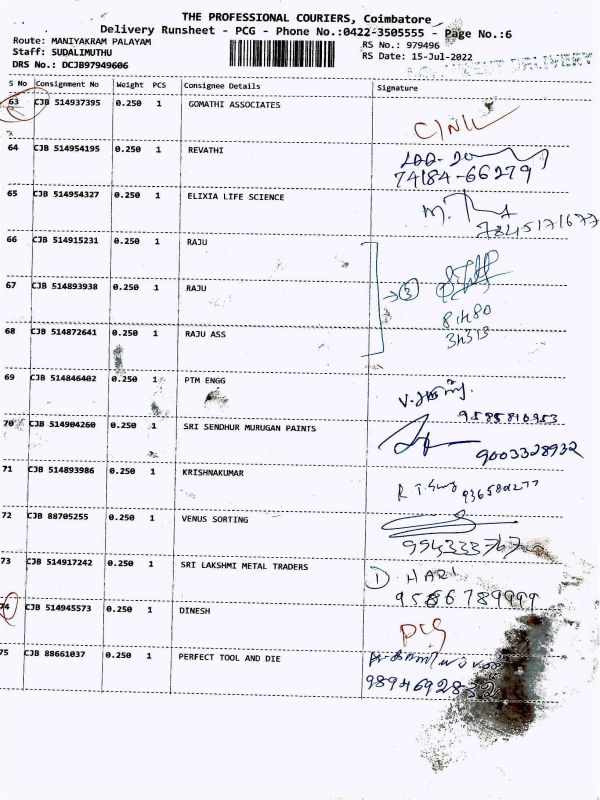 THE PROFESSIONAL COURIERS, Coimbatore
Delivery Runsheet - PCG - Phone No.:0422-3505555 - Page No.:6
Route: MANIYAKRAM PALAYAM
RS No.: 979496
Staff: SUDALIMUTHU
RS Date: 15-Jul-2022
DRS No.: DCJB97949606
DELIVERY
S No Consignment No Weight PCS Consignee Details Signature
63 CJB 514937395 0.250 1 GOMATHI ASSOCIATES
64 CJB 514954195 0.250 1 REVATHI
74184-66279
65 CJB 514954327 0.250 1 ELIXIA LIFE SCIENCE
7845171677
66 CJB 514915231 0.250 1 RAJU
67 CJB 514893938 0.250 1 RAJU
3
68 CJB 514872641 0.250 1 RAJU ASS
69 CJB 514846402 0.250 1 PTM ENGG
9585810953
70 CJB 514904260 0.250 1 SRI SENDHUR MURUGAN PAINTS
9003328932
71 CJB 514893986 0.250 1 KRISHNAKUMAR
72 CJB 88705255 0.250 1 VENUS SORTING
73 CJB 514917242 0.250 1 SRI LAKSHMI METAL TRADERS
1 HARI
9586789999
74 CJB 514945573 0.250 1 DINESH
PCG
75 CJB 88661037 0.250 1 PERFECT TOOL AND DIE
9894692832